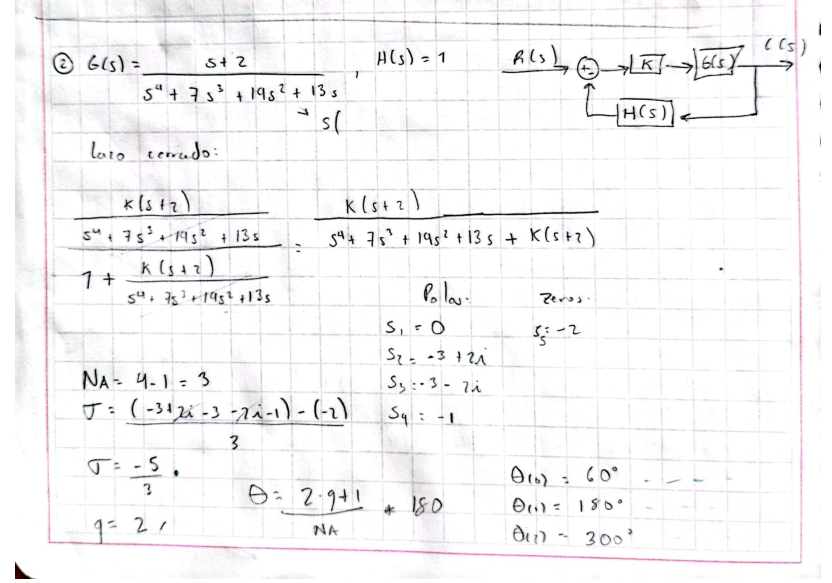 ② G(s) = s+2 / s⁴ + 7s³ + 19s² + 13s , H(s) = 1
R(s) + - K G(s) C(s)
H(s)
s(
lazo cerrado:
K(s+2) / s⁴ + 7s³ + 19s² + 13s / 1 + K(s+2) / s⁴ + 7s³ + 19s² + 13s = K(s+2) / s⁴ + 7s³ + 19s² + 13s + K(s+2)
Polos. Zeros.
S₁ = 0 S₅ = -2
S₂ = -3 + 2i
S₃ = -3 - 2i
S₄ = -1
NA = 4 - 1 = 3
σ = (-3+2i -3 -2i -1) - (-2) / 3
σ = -5 / 3
q = 2
θ = 2·q+1 / NA * 180
θ(0) = 60°
θ(1) = 180°
θ(2) = 300°